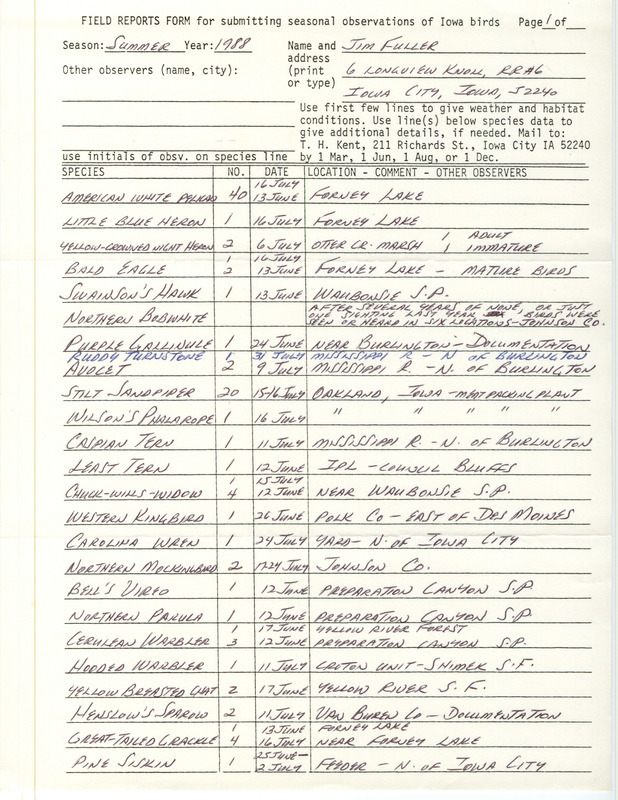 FIELD REPORTS FORM for submitting seasonal observations of Iowa birds Page 1 of
Season: SUMMER Year: 1988 Name and JIM FULLER
address
Other observers (name, city): (print 6 LONGVIEW KNOLL, RR#6
or type) IOWA CITY, IOWA, 52240
Use first few lines to give weather and habitat
conditions. Use line(s) below species data to
give additional details, if needed. Mail to:
T. H. Kent, 211 Richards St., Iowa City IA 52240
use initials of obsv. on species line by 1 Mar, 1 Jun, 1 Aug, or 1 Dec.
SPECIES NO. DATE LOCATION - COMMENT - OTHER OBSERVERS
16 JULY
AMERICAN WHITE PELICAN 40 13 JUNE FORNEY LAKE
LITTLE BLUE HERON 1 16 JULY FORNEY LAKE
1 ADULT
YELLOW-CROWNED NIGHT HERON 2 6 JULY OTTER CR. MARSH 1 IMMATURE
1 16 JULY
BALD EAGLE 2 13 JUNE FORNEY LAKE - MATURE BIRDS
SWAINSON'S HAWK 1 13 JUNE WAUBONSIE S.P.
AFTER SEVERAL YEARS OF NONE, OR JUST
NORTHERN BOBWHITE ONE SIGHTING LAST YEAR, BIRDS WERE
SEEN OR HEARD IN SIX LOCATIONS-JOHNSON CO.
PURPLE GALLINULE 1 24 JUNE NEAR BURLINGTON - DOCUMENTATION
RUDDY TURNSTONE 1 31 JULY MISSISSIPPI R - N OF BURLINGTON
AVOCET 2 9 JULY MISSISSIPPI R. - N. OF BURLINGTON
STILT SANDPIPER 20 15-16 JULY OAKLAND, IOWA - MEAT PACKING PLANT
WILSON'S PHALAROPE 1 16 JULY " " " " "
CASPIAN TERN 1 11 JULY MISSISSIPPI R. - N. OF BURLINGTON
LEAST TERN 1 12 JUNE IPL - COUNCIL BLUFFS
1 15 JULY
CHUCK-WILLS-WIDOW 4 12 JUNE NEAR WAUBONSIE S.P.
WESTERN KINGBIRD 1 26 JUNE POLK CO - EAST OF DES MOINES
CAROLINA WREN 1 24 JULY YARD - N. OF IOWA CITY
NORTHERN MOCKINGBIRD 2 17-24 JULY JOHNSON CO.
BELL'S VIREO 1 12 JUNE PREPARATION CANYON S.P.
NORTHERN PARULA 1 12 JUNE PREPARATION CANYON S.P.
1 17 JUNE YELLOW RIVER FOREST
CERULEAN WARBLER 3 12 JUNE PREPARATION CANYON S.P.
HOODED WARBLER 1 11 JULY CROTON UNIT - SHIMEK S.F.
YELLOW BREASTED CHAT 2 17 JUNE YELLOW RIVER S.F.
HENSLOW'S SPAROW 2 11 JULY VAN BUREN CO - DOCUMENTATION
1 13 JUNE FORNEY LAKE
GREAT-TAILED GRACKLE 4 16 JULY NEAR FORNEY LAKE
25 JUNE -
PINE SISKIN 1 2 JULY FEEDER - N. OF IOWA CITY